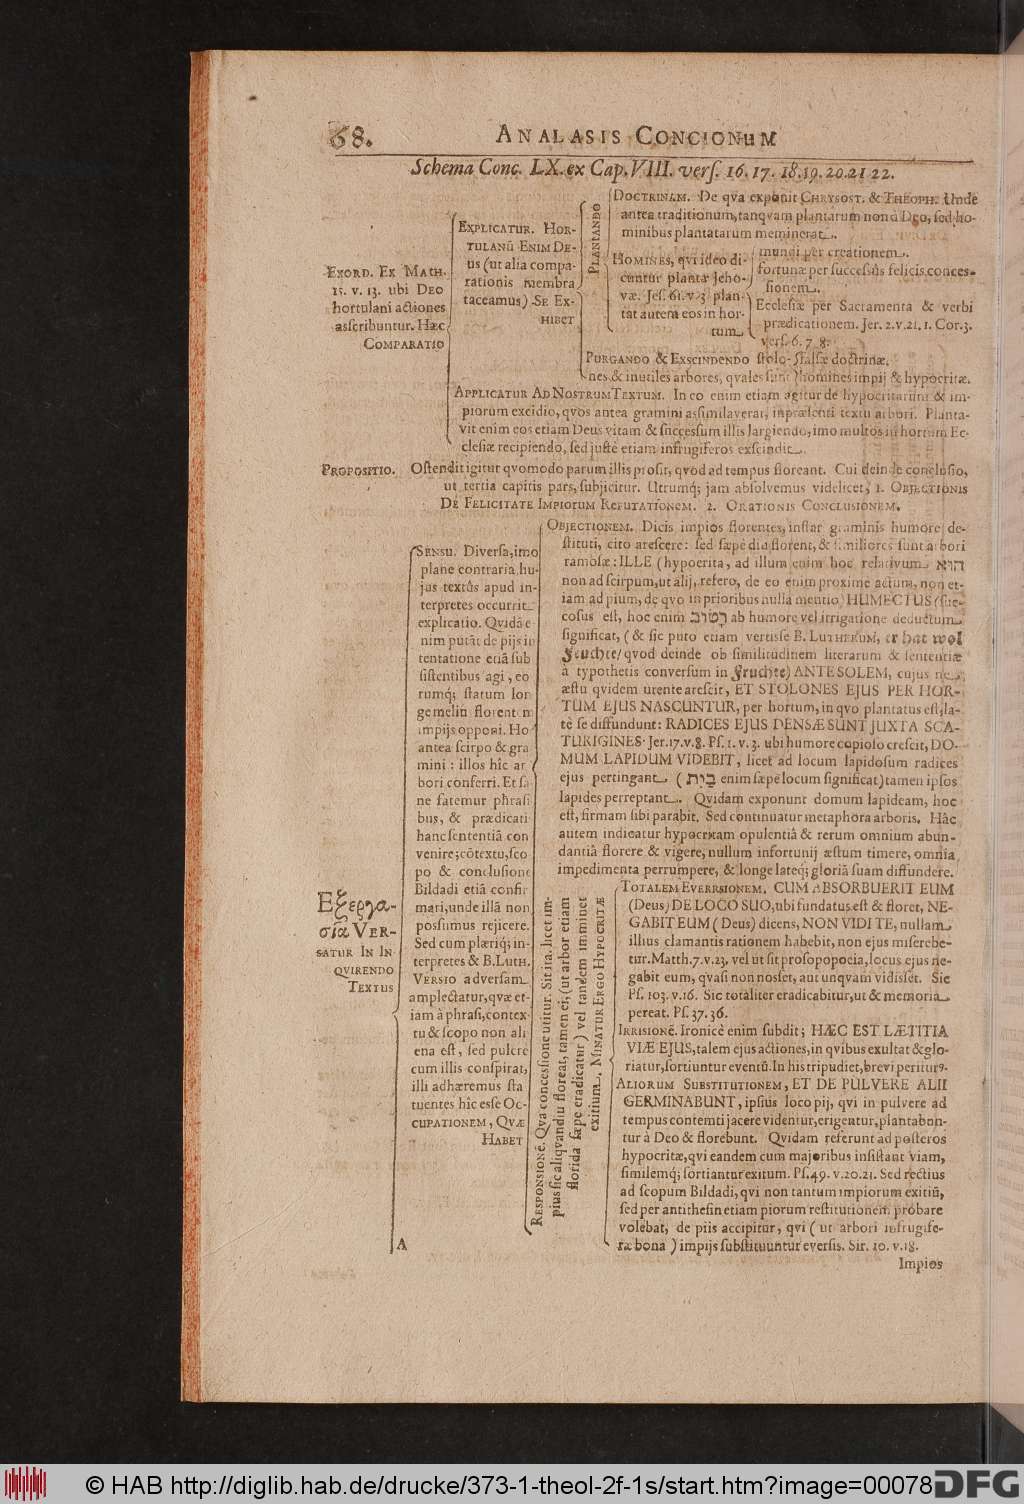 68.
ANALASIS CONCIONUM
Schema Conc. LX. ex Cap. VIII. vers. 16. 17. 18. 19. 20. 21 22.
EXORD. EX MATH.
15. v. 13. ubi DEO
hortulani actiones
ascribuntur. Hæc
COMPARATIO
EXPLICATUR. HOR-
TULANŪ ENIM DE-
us (ut alia compa-
rationis membra
taceamus) SE EX-
HIBET
PLANTANDO
DOCTRINAM. De qva exponit CHRYSOST. & THEOPH: Unde
antea traditionum, tanqvam plantarum non à Deo, sed ho-
minibus plantatarum meminerat.
HOMINES, qvi ideo di-
cuntur plantæ Jeho-
væ. Jes. 61. v. 3 plan-
tat autem eos in hor-
tum
mundi per creationem.
fortunæ per successûs felicis conces-
sionem.
Ecclesiæ per Sacramenta & verbi
prædicationem. Jer. 2. v. 21. 1. Cor. 3.
vers. 6. 7 8.
PURGANDO & EXSCINDENDO stolo- falsæ doctrinæ.
nes & inutiles arbores, quales sunt homines impij & hypocritæ.
APPLICATUR AD NOSTRUM TEXTUM. In eo enim etiam agitur de hypocritarum & im-
piorum excidio, qvos antea gramini assimilaverat, in præsenti textu arbori. Planta-
vit enim eos etiam Deus vitam & successum illis largiendo, imo multos in hortum Ec-
clesiæ recipiendo, sed justè etiam infrugiferos exscindit.
PROPOSITIO. Ostendit igitur qvomodo parum illis prosit, qvod ad tempus floreant. Cui deinde conclusio,
ut tertia capitis pars, subjicitur. Utrumq; jam absolvemus videlicet, 1. OBJECTIONIS
DE FELICITATE IMPIORUM REFUTATIONEM. 2. ORATIONIS CONCLUSIONEM.
Εξεργα-
σία VER-
SATUR IN IN
QVIRENDO
TEXTUS
SENSU. Diversa, imo
plane contraria hu-
jus textûs apud in-
terpretes occurrit
explicatio. Qvidā e-
nim putāt de pijs in
tentatione etiā sub
sistentibus agi, eo
rumq; statum lon
ge meliū florentem
impijs opponi. Ho
antea scirpo & gra
mini: illos hîc ar
bori conferri. Et sa
ne fatemur phrasi
bus, & prædicati
hanc sententiā con
venire; cōtextu, sco
po & conclusione
Bildadi etiā confir
mari, unde illā non
possumus rejicere.
Sed cum plæriq; in-
terpretes & B. Luth.
VERSIO adversam
amplectatur, qvæ et-
iam à phrasi, contex-
tu & scopo non ali
ena est, sed pulcre
cum illis conspirat,
illi adhæremus sta
tuentes hîc esse OC-
CUPATIONEM, QVÆ
HABET
A
OBJECTIONEM. Dicis impios florentes, instar graminis humore de-
stituti, cito arescere: sed sæpe diu florent, & similiores sunt arbori
ramosæ: ILLE (hypocrita, ad illum enim hoc relativum הוא
non ad scirpum, ut alij, refero, de eo enim proxime actum, non et-
iam ad pium, de qvo in prioribus nulla mentio) HUMECTUS (suc-
cosus est, hoc enim רטוב ab humore vel irrigatione deductum
significat, (& sic puto etiam vertisse B. LUTHERUM, er hat wol
Feuchte/ qvod deinde ob similitudinem literarum & sententiæ
à typothetis conversum in Fruchte) ANTE SOLEM, cujus ne
æstu qvidem urente arescit, ET STOLONES EJUS PER HOR-
TUM EJUS NASCUNTUR, per hortum, in qvo plantatus est, la-
tè se diffundunt: RADICES EJUS DENSÆ SUNT JUXTA SCA-
TURIGINES. Jer. 17. v. 8. Ps. 1. v. 3. ubi humore copioso crescit, DO-
MUM LAPIDUM VIDEBIT, licet ad locum lapidosum radices
ejus pertingant. (בית enim sæpe locum significat) tamen ipsos
lapides perreptant. Qvidam exponunt domum lapideam, hoc
est, firmam sibi parabit. Sed continuatur metaphora arboris. Hâc
autem indicatur hypocritam opulentiâ & rerum omnium abun-
dantiâ florere & vigere, nullum infortunij æstum timere, omnia
impedimenta perrumpere, & longe lateq; gloriâ suam diffundere.
RESPONSIONĒ. Qva concessione utitur. Sit ita. licet im-
pius sic aliqvandiu floreat, tamen ei, (ut arbor etiam
florida sæpe eradicatur) vel tandem imminet
exitium. MINATUR ERGO HYPOCRITÆ
TOTALEM EVERRSIONEM. CUM ABSORBUERIT EUM
(Deus) DE LOCO SUO, ubi fundatus est & floret, NE-
GABIT EUM (Deus) dicens, NON VIDI TE, nullam
illius clamantis rationem habebit, non ejus miserebe-
tur. Matth. 7. v. 23. vel ut sit prosopopœia, locus ejus ne-
gabit eum, qvasi non nosset, aut unqvam vidisset. Sic
Ps. 103. v. 16. Sic totaliter eradicabitur, ut & memoria
pereat. Ps. 37. 36.
IRRISIONĒ. Ironicè enim subdit; HÆC EST LÆTITIA
VIÆ EJUS, talem ejus actiones, in qvibus exultat & glo-
riatur, sortiuntur eventū. In his tripudiet, brevi periturꝰ.
ALIORUM SUBSTITUTIONEM, ET DE PULVERE ALII
GERMINABUNT, ipsius loco pij, qvi in pulvere ad
tempus contemti jacere videntur, erigentur, plantabun-
tur à Deo & florebunt. Qvidam referunt ad posteros
hypocritæ, qvi eandem cum majoribus insistant viam,
similemq; sortiantur exitum. Ps. 49. v. 20. 21. Sed rectius
ad scopum Bildadi, qvi non tantum impiorum exitiū,
sed per antithesin etiam piorum restitutionem probare
volebat, de piis accipitur, qvi (ut arbori infrugife-
ræ bona) impijs substituuntur eversis. Sir. 10. v. 18.
Impios
© HAB http://diglib.hab.de/drucke/373-1-theol-2f-1s/start.htm?image=00078
DFG